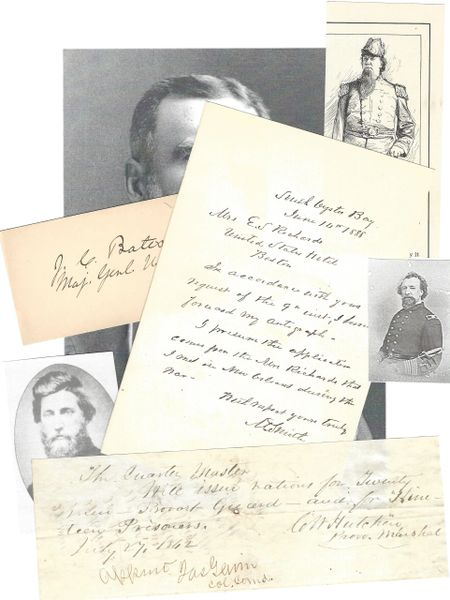 South Oyster Bay
June 14th 1888
Mrs. E. S. Richards
United States Hotel
Boston
In accordance with your
request of the inst. I here
forward my autograph -
I presume the application
comes from the Mrs Richards that
I met in New Orleans during the
War -
With respect yours truly
J. C. Bates
Maj. Genl. U
The Quarter Master
Will issue rations for Twenty
- Provost Guard - and for Nine-
teen Prisoners.
July 27, 1862
Prov. Marshal
Jas Gavin
Col. Comd.